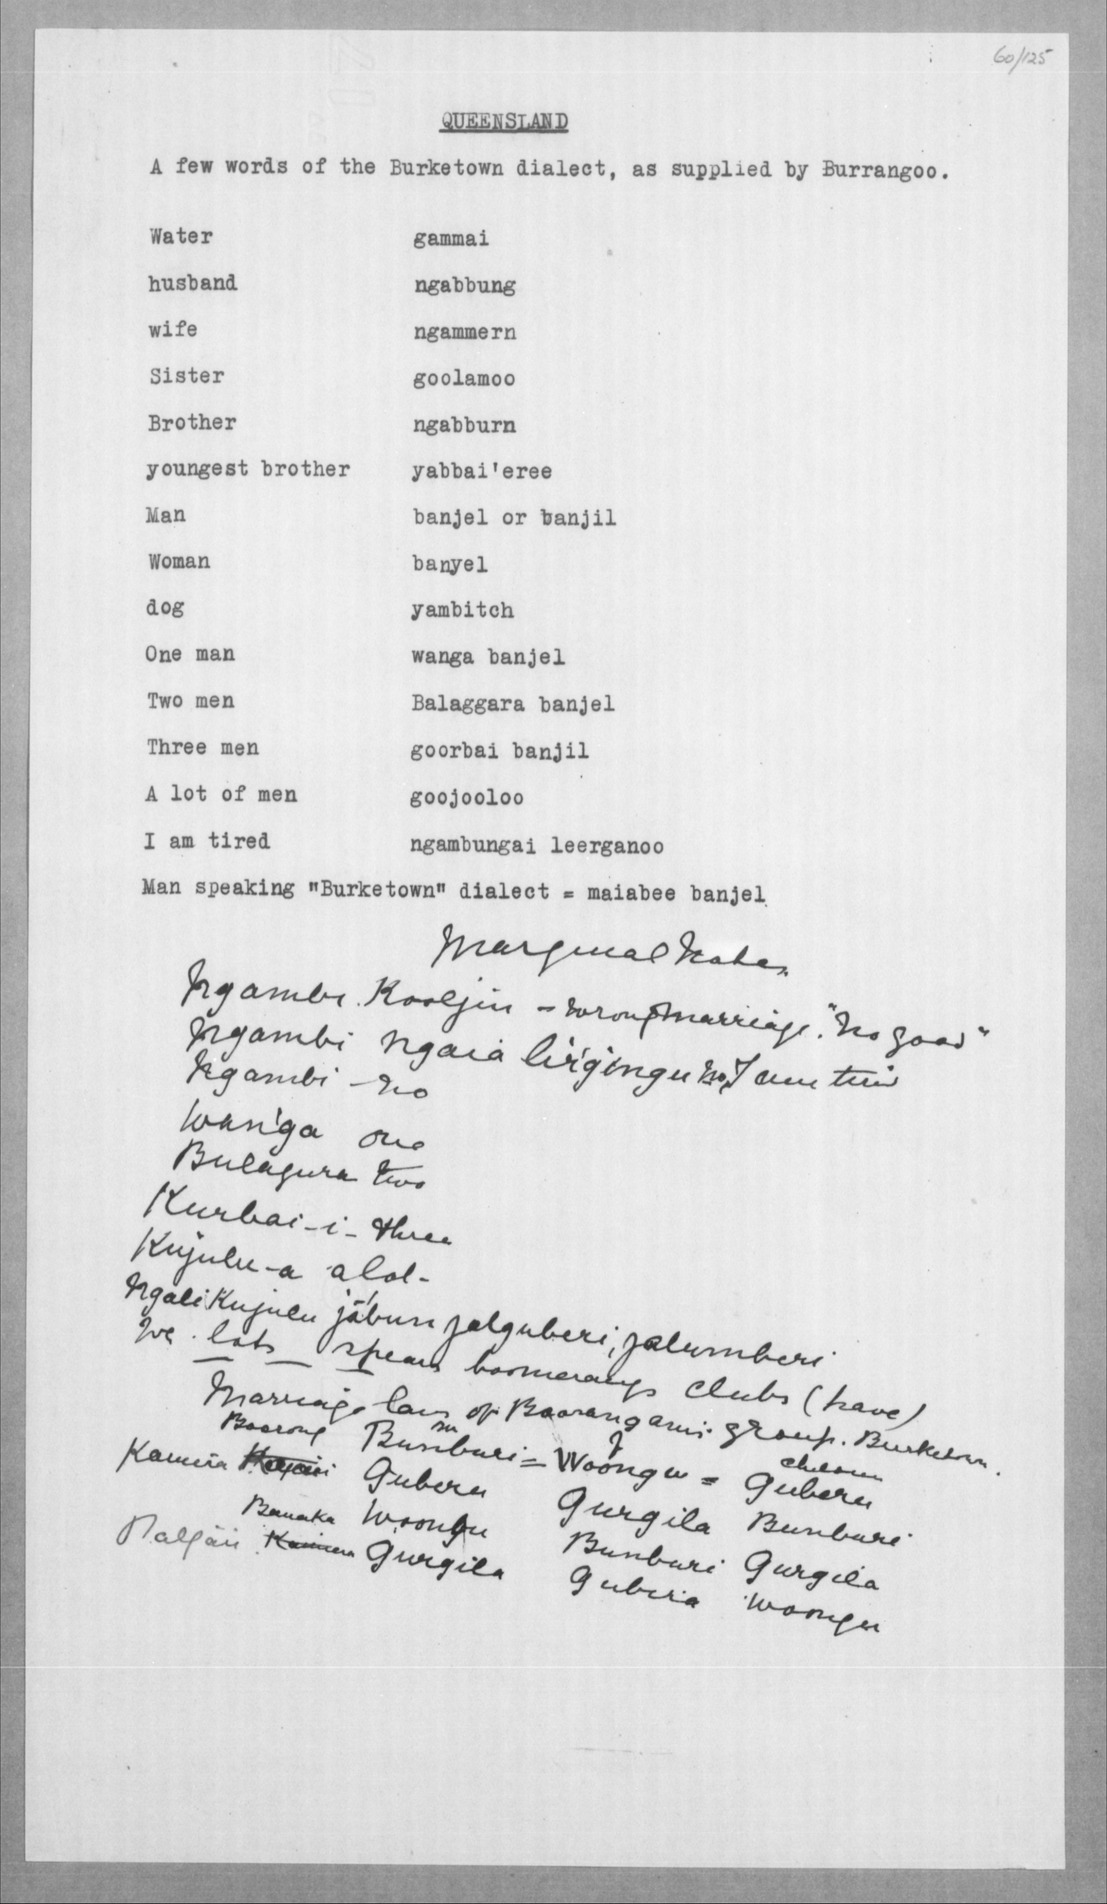 60/125
QUEENSLAND
A few words of the Burketown dialect, as supplied by Burrangoo.
Water gammai
husband ngabbung
wife ngammern
Sister goolamoo
Brother ngabburn
youngest brother yabbai'eree
Man banjel or banjil
Woman banyel
dog yambitch
One man wanga banjel
Two men Balaggara banjel
Three men goorbai banjil
A lot of men goojooloo
I am tired ngambungai leerganoo
Man speaking "Burketown" dialect = maiabee banjel
Marginal Notes
Ngambi Kooljin - wrong marriage. "No good"
Ngambi ngaia lirgingu No, I am
Ngambi - no
Wanga one
Bulagura two
Kurbai-i- three
Kujulu-a a lot-
Ngali Kujulu jābun jalguberi, jalumberi
We lots spears boomerangs clubs (have)
Marriage laws of Boorangami group. Burketown.
Boorong Bunburi = Woongu = Gubera
children
Kamera Gubera Gurgila Bunburi
Banaka Woongu Bunburi Gurgila
Paljari Gurgila Gubera Woongu